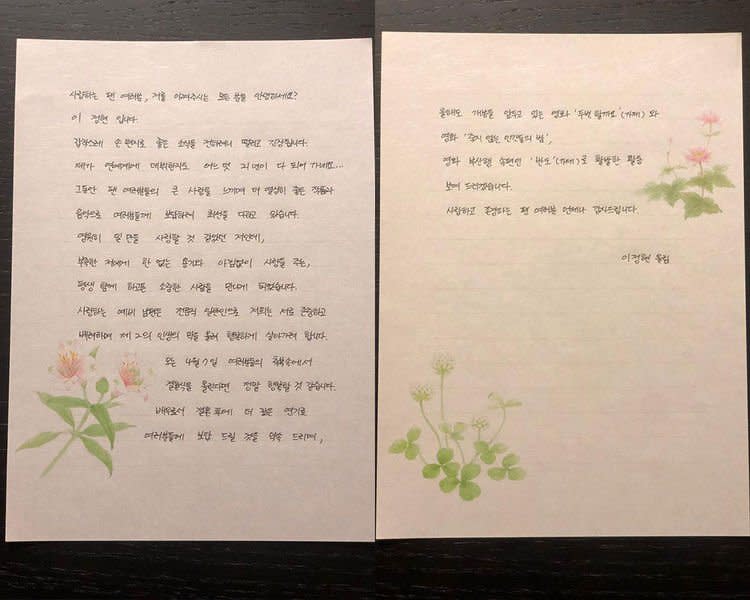 사랑하는 팬 여러분, 저를 아껴주시는 모든 분들 안녕하세요?
이 정현 입니다.
갑작스레 손 편지로 좋은 소식을 전하려니 떨리고 긴장됩니다.
제가 연예계에 데뷔한지도 어느 덧 21년이 다 되어 가네요...
그동안 팬 여러분들의 큰 사랑을 느끼며 더 열심히 좋은 작품과
음악으로 여러분들께 보답하려 최선을 다하고 있습니다.
영원히 일 만을 사랑할 것 같았던 저인데,
부족한 저에게 한 없는 용기와 아낌없이 사랑을 주는,
평생 함께 하고픈 소중한 사람을 만나게 되었습니다.
사랑하는 예비 남편은 전문직 일반인으로 저희는 서로 존중하고
배려하며 제 2의 인생의 막을 올려 행복하게 살아가려 합니다.
오는 4월 7일 여러분들의 축복속에서
결혼식을 올린다면 정말 행복할 것 같습니다.
배우로서 결혼 후에 더 깊은 연기로
여러분들께 보답 드릴 것을 약속 드리며,
올해도 개봉을 앞두고 있는 영화 '두번 할까요'(가제) 와
영화 '죽지 않는 인간들의 밤',
영화 부산행 속편인 '반도'(가제)로 활발한 활동
보여 드리겠습니다.
사랑하고 존경하는 팬 여러분 언제나 감사드립니다.
이정현 올림